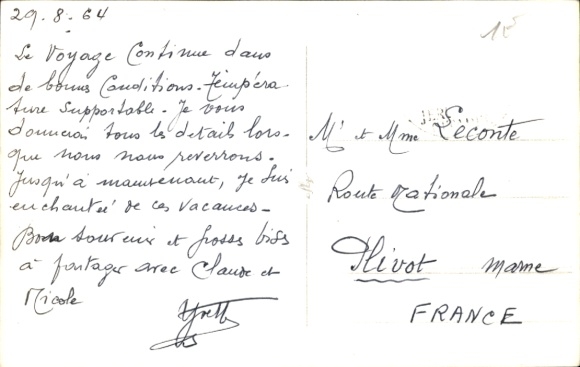 29.8.64
Le Voyage Continue dans
de bonnes Conditions. Tempéra
ture Supportable. Je vous
donnerai tous les details lors-
que nous nous reverrons.
Jusqu'à maintenant, je suis
enchantée de ces vacances-
Bon souvenir et grosses bises
à partager avec Claude et
Nicole
Yvette
15
Mr et Mme Leconte
Route Nationale
Plivot Marne
FRANCE